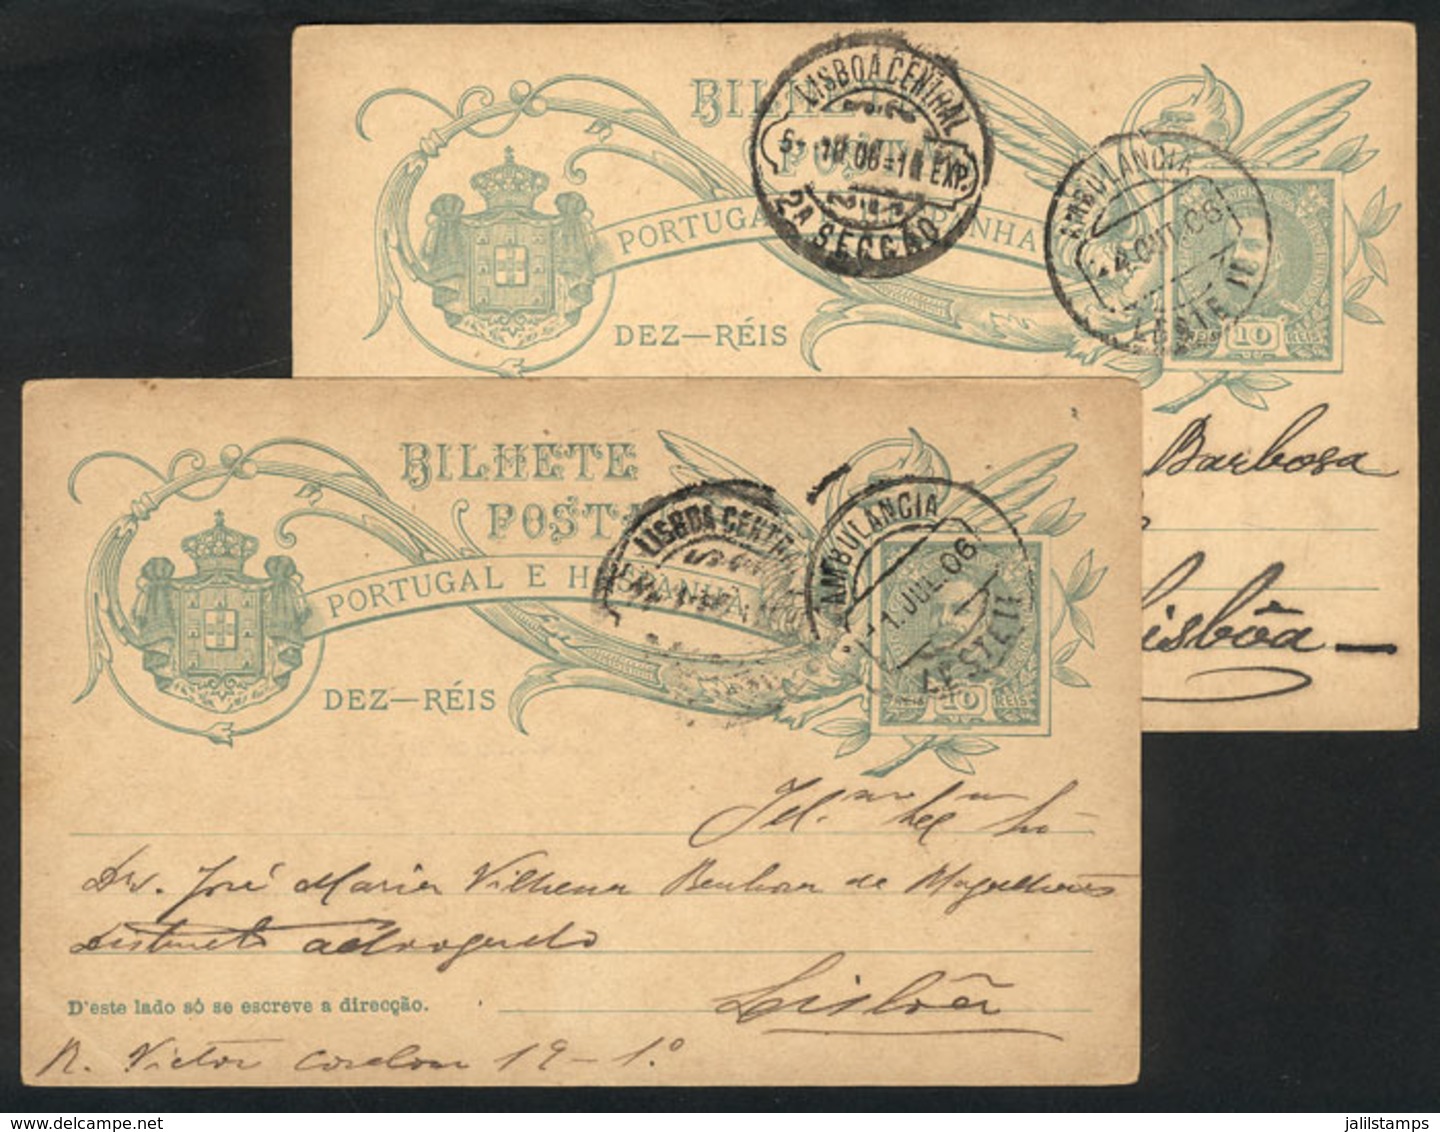 BILHETE
LISBOA CENTRAL
06
EXP.
2A SECÇÃO
AMBULANCIA
4.OUT.06
LESTE II
DEZ—RÉIS
10 REIS
Barbosa
Lisbôa
BILHETE
POSTAL
PORTUGAL E HESPANHA
LISBOA CENTRAL
AMBULANCIA
1.JUL.06
LESTE II
DEZ—RÉIS
10 REIS
Dr. José Maria Vilhena Barbosa de Magalhães
Distincto advogado
Lisbôa
D'este lado só se escreve a direcção.
R. Victor Cordon 19-1.º
delcampe.net
jalilstamps